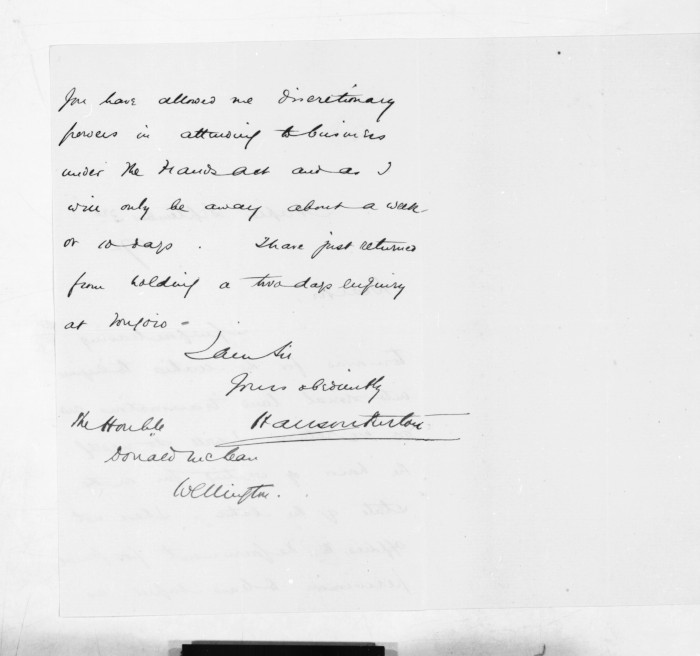 You have allowed me discretionary
powers in attending to business
under the Frauds act and as I
will only be away about a week
or 10 days. I have just returned
from holding a two days enquiry
at Tongoio -
I am Sir
Yours obediently
Hanson Turton
The Honble
Donald McLean
Wellington.